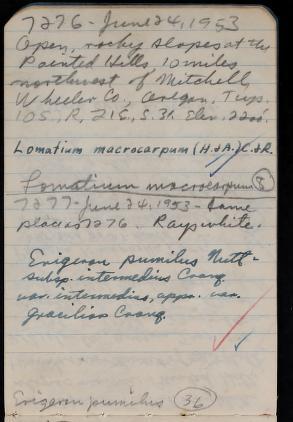 7276 - June 24, 1953
Open, rocky slopes at the
Painted Hills, 10 miles
northwest of Mitchell,
Wheeler Co., Oregon. Twp.
10S, R. 21E, S. 31. Elev. 2200'.
Lomatium macrocarpum (H. & A.) C. & R.
Lomatium macrocarpum 8
7277 - June 24, 1953 - Same
place as 7276. Rays white.
Erigeron pumilus Nutt.
subsp. intermedius Cronq.
var. intermedius, appr. var.
gracilior Cronq.
Erigeron pumilus 36